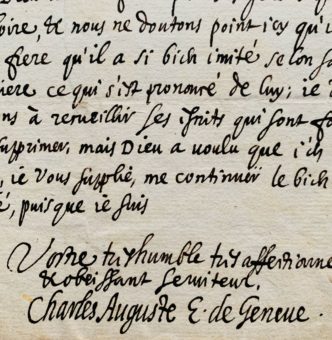 oire, & nous ne doutons point icy qu'i
fiere qu'il a si bien imité selon sa
iere ce qui s'est prononcé de luy; ie
ns à recueillir ses fruits qui sont
supprimer, mais Dieu a voulu que i'en
, ie vous supplie, me continuer le bien
é, puis que ie suis
Vostre tres humble tres affectionne
& obeissant serviteur,
Charles Auguste E. de Geneve.